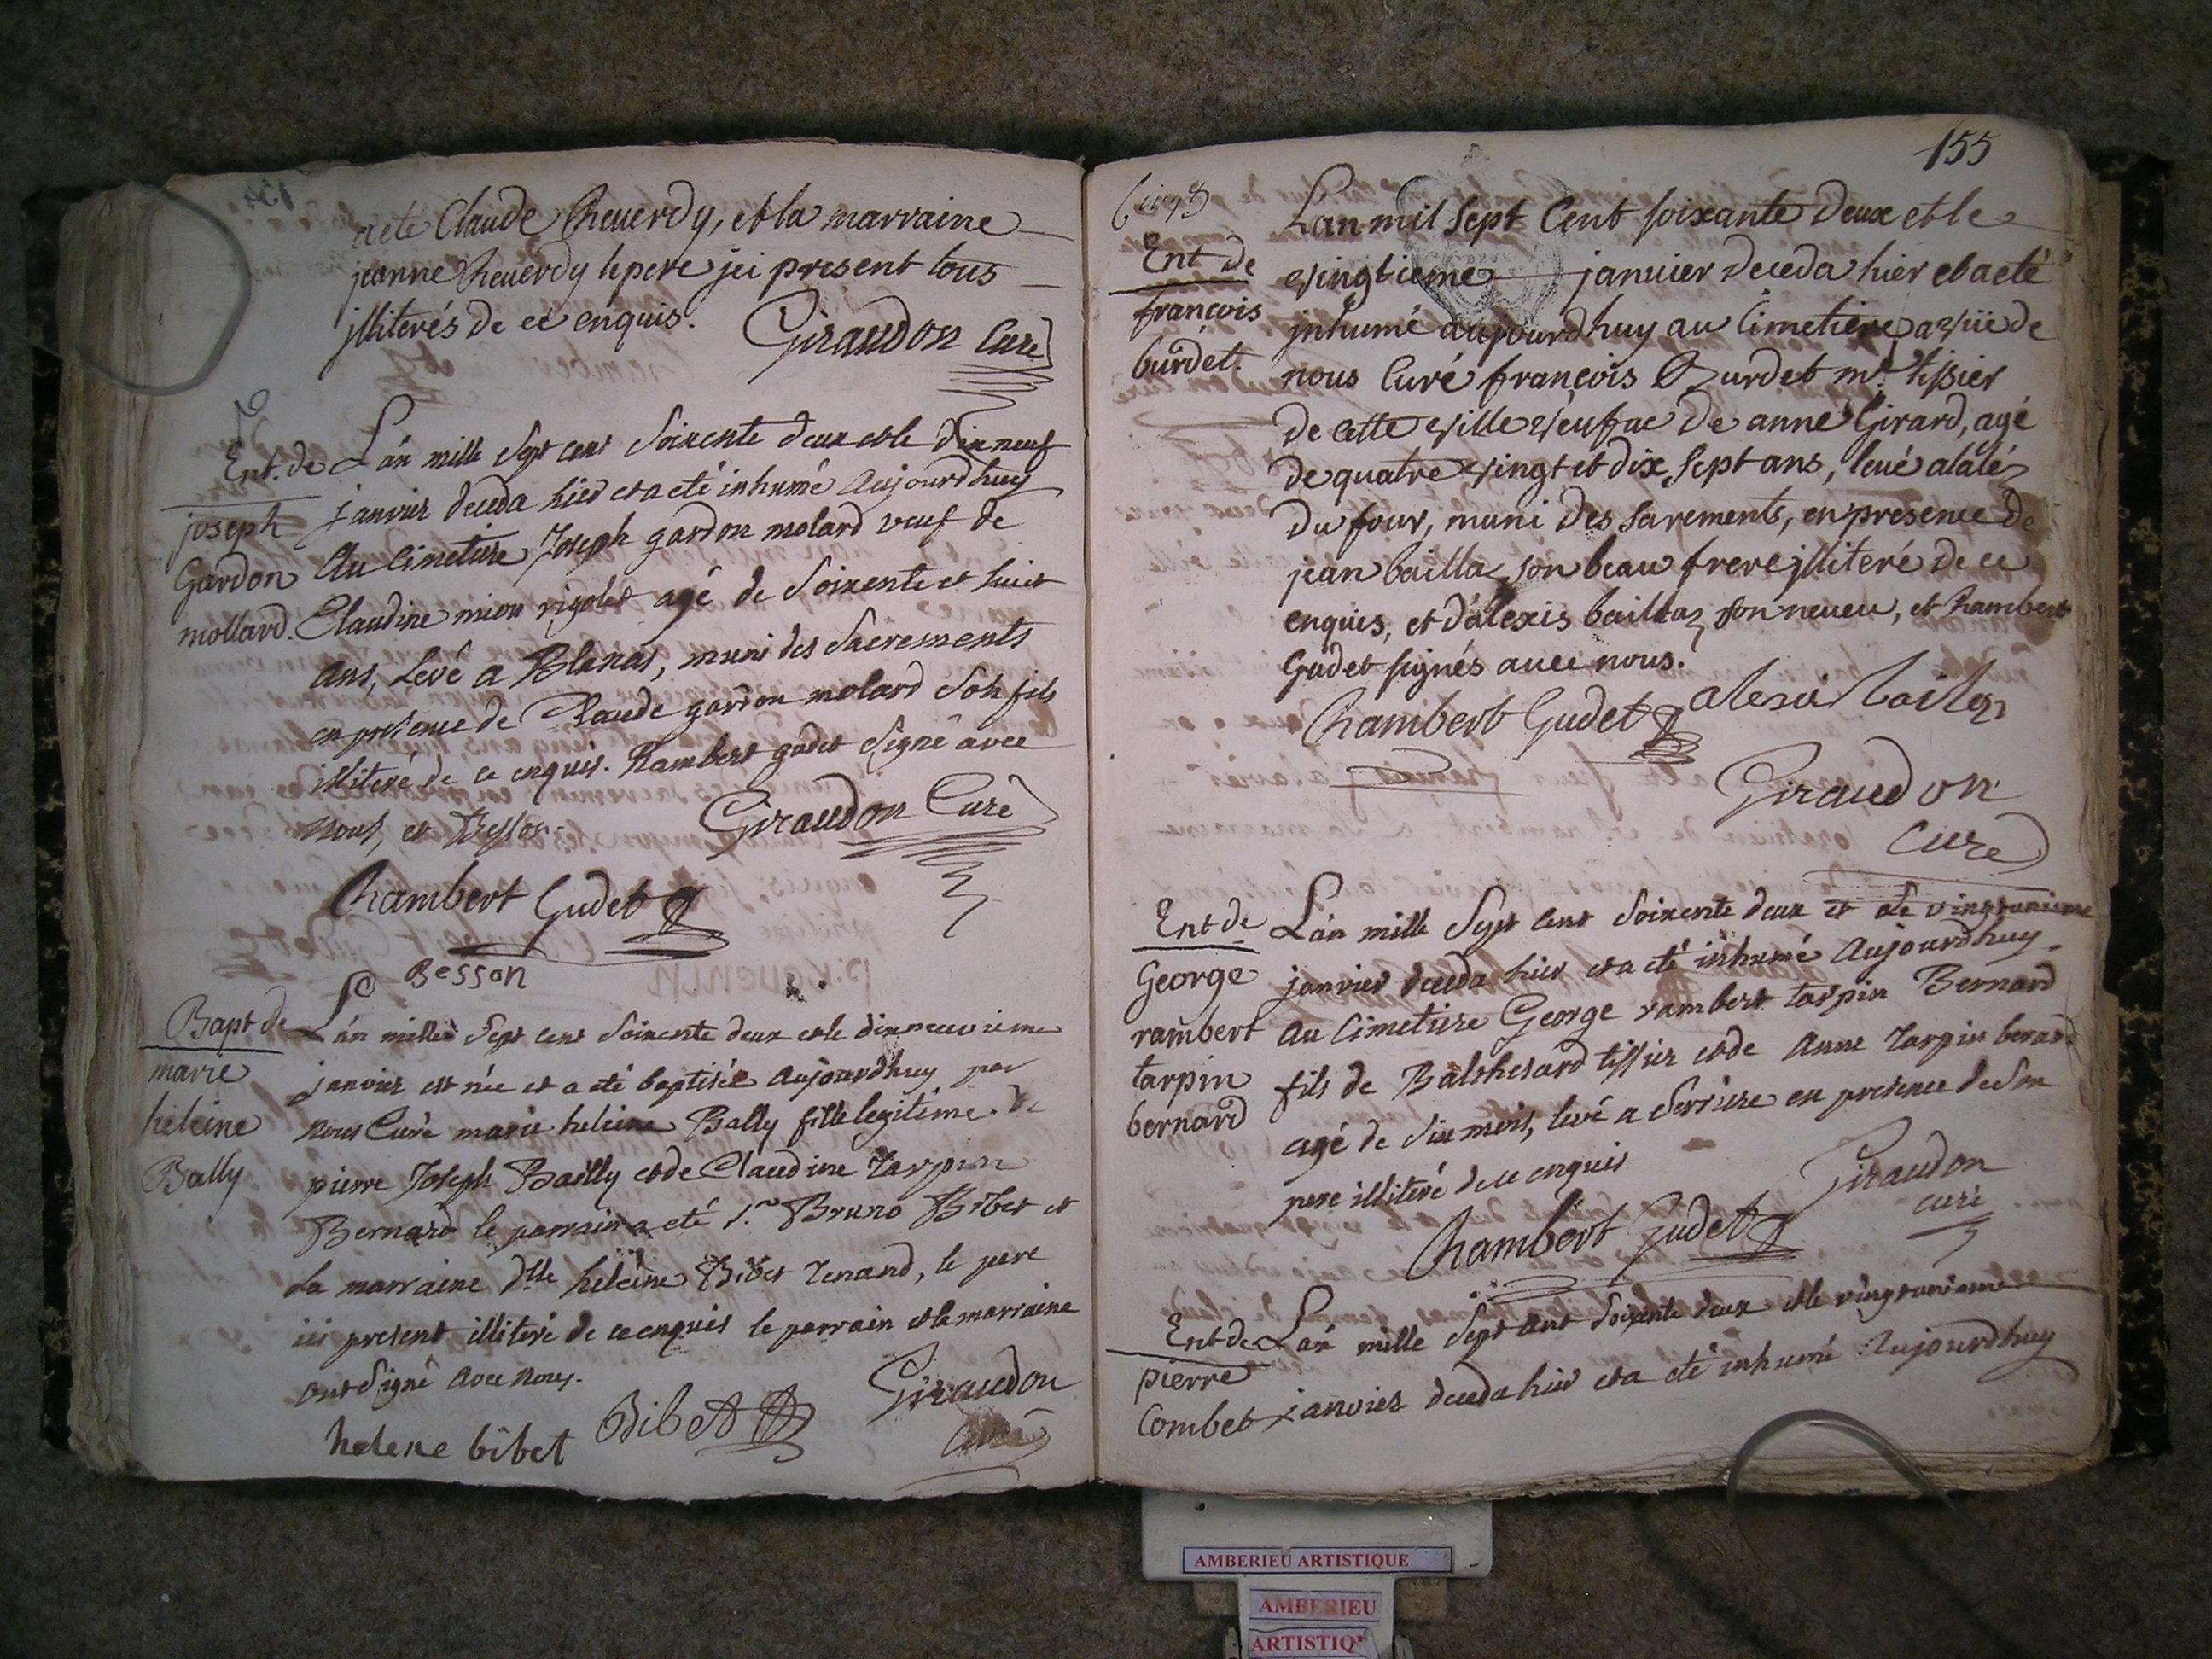 a eté Claude Cheuerdy, et la marraine
jeanne Cheuerdy le pere jci present tous
jlliterés de ce enquis. Giraudon Curé
Ent. de
joseph
Gardon
mollard.
L'an mille Sept cent Soixente deux et le dix neuf
janvier deceda hier et a eté inhumé Aujourdhuy
Au Cimetiere Joseph gardon molard veuf de
Claudine mion rigolet agé de Soixente et huit
ans, Levé a Blanas, muni des Sacrements
en presence de Claude gardon molard Son fils
illiteré de ce enquis. Rambert gudet Signé avec
nous, et Besson. Giraudon Curé
Chambert Gudet
Besson
Bapt de
marie
heleine
Bally
L'an mille Sept cent Soixente deux et le dixneuvieme
janvier est née et a eté baptisée Aujourdhuy par
nous Curé marie heleine Bally fille legitime de
pierre Joseph Bailly et de Claudine Tarpin
Bernard le parrain a eté s.r Bruno Bibet et
la marraine dlle heleine Bibet Tenand, le pere
ici present illiteré de ce enquis le parrain et la marraine
ont Signé avec nous.
helene bibet Bibet Giraudon
Curé
155
Ent de
françois
burdet.
Lan mil Sept Cent soixante Deux et le
vingtieme januier Deceda hier et a eté
jnhumé aujourdhuy au Cimetiere a vüe de
nous Curé françois Burdet m.e tissier
de cette ville veufue De anne Girard, agé
de quatre vingt et dix Sept ans, leué a la
Du four, muni Des Sacrements, en presence De
jean bailla son beau frere jlliteré de ce
enquis, et d'alexis baillaz son neueu, et Rambert
Gudet signés auec nous.
Chambert Gudet
Giraudon
Curé
Ent de
George
rambert
tarpin
bernard
L'an mille Sept cent Soixente deux et le vingtunieme
janvier deceda hier et a eté inhumé Aujourdhuy
au Cimetiere George rambert tarpin Bernard
fils de Balthesard tissier et de Anne Tarpin berard
agé de Six mois, levé a Serriere en presence de Son
pere illiteré de ce enquis Giraudon
Chambert Gudet curé
Ent de
pierre
Combet
L'an mille Sept cent Soixente deux et le vingtunieme
janvier deceda hier et a eté inhumé Aujourdhuy
AMBERIEU ARTISTIQUE
AMBERIEU
ARTISTIQ